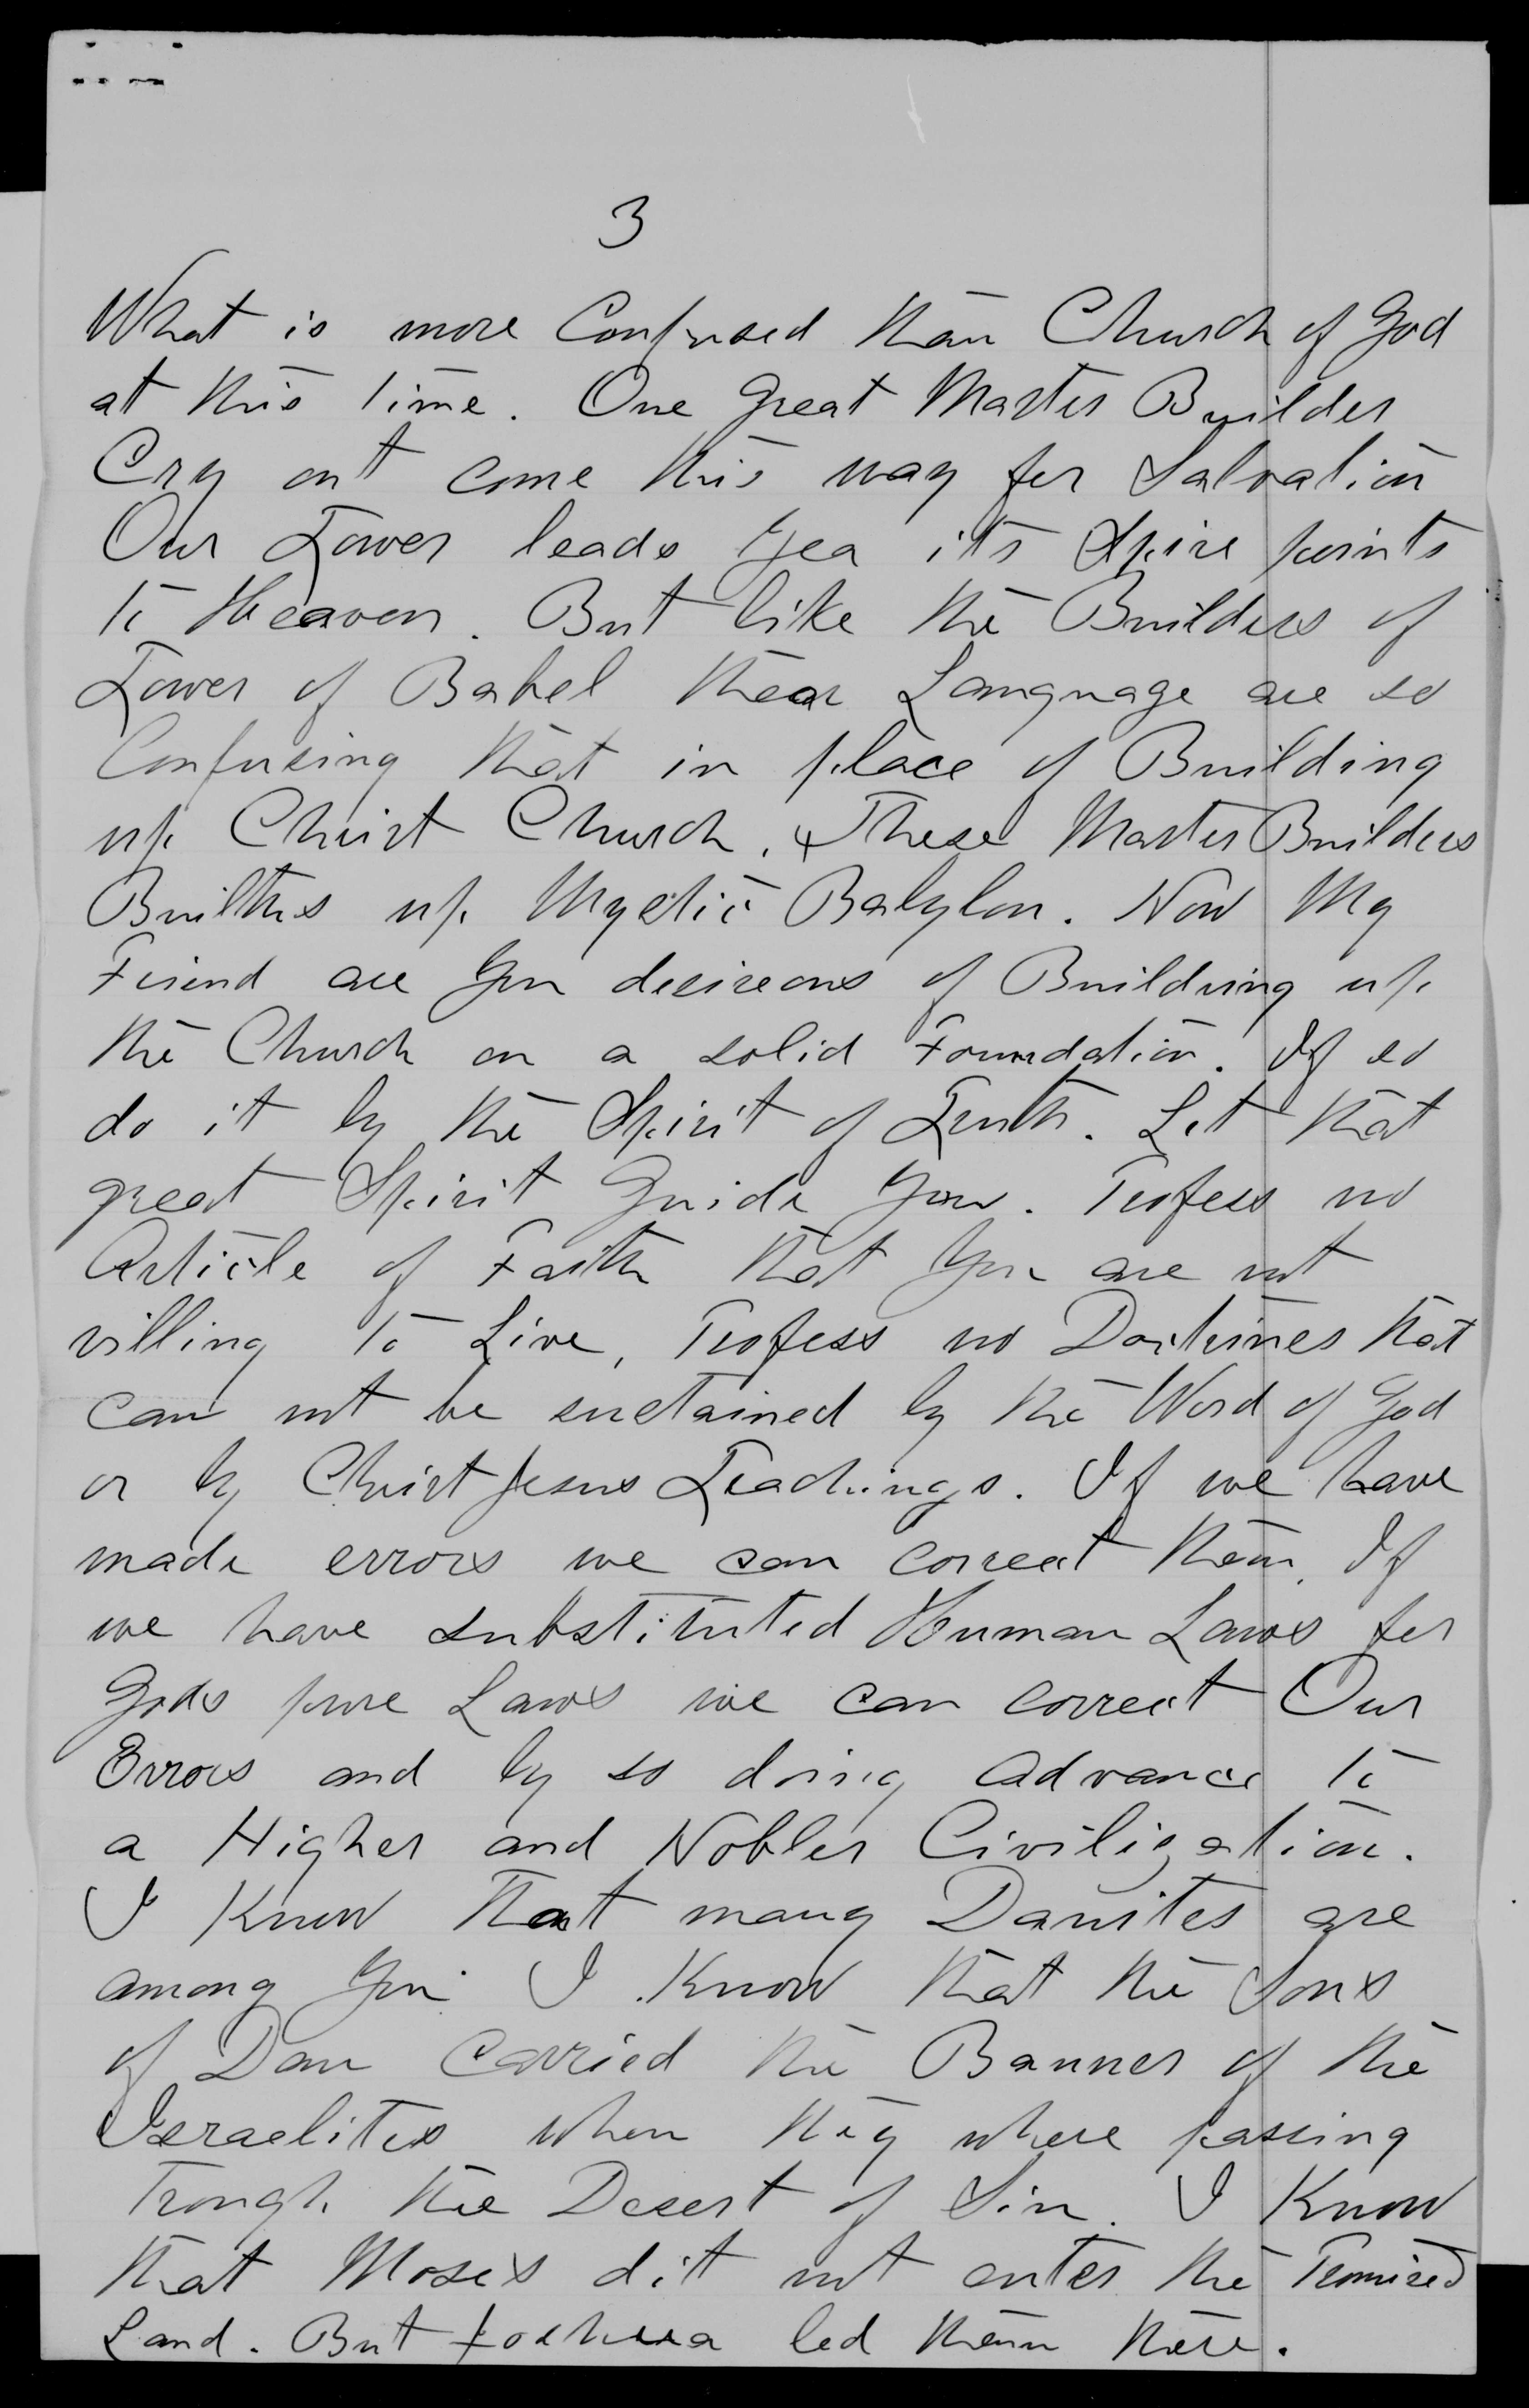 3
What is more Confused than Church of God
at this time. One Great Master Builder
Cry out come this way for Salvation
Our Tower leads Yea its Spire points
to Heaven. But like the Builders of
Tower of Babel thear Language are so
Confusing that in place of Building
up Christ Church. These Master Builders
Builths up Mystic Babylon. Now My
Friend are You desireous of Buildning up
the Church on a solid Foundation. If so
do it by the Spirit of Truth. Let that
great Spirit Guide You. Profess no
Article of Faith that You are not
villing to Live, Profess no Doctrines that
can not be sustained by the Word of God
or by Christ Jesus Teachings. If we have
made errors we can correct them. If
we have substituted Human Laws for
Gods pure Laws we can correct Our
Errors and by so doing advance to
a Higher and Nobler Civilization.
I Know that many Danites are
among You. I Know that the Sons
of Dan carried the Banner of the
Israelites when they where passing
Trough the Desert of Sin. I Know
that Moses dit not enter the Promised
Land. But Joshua led them there.